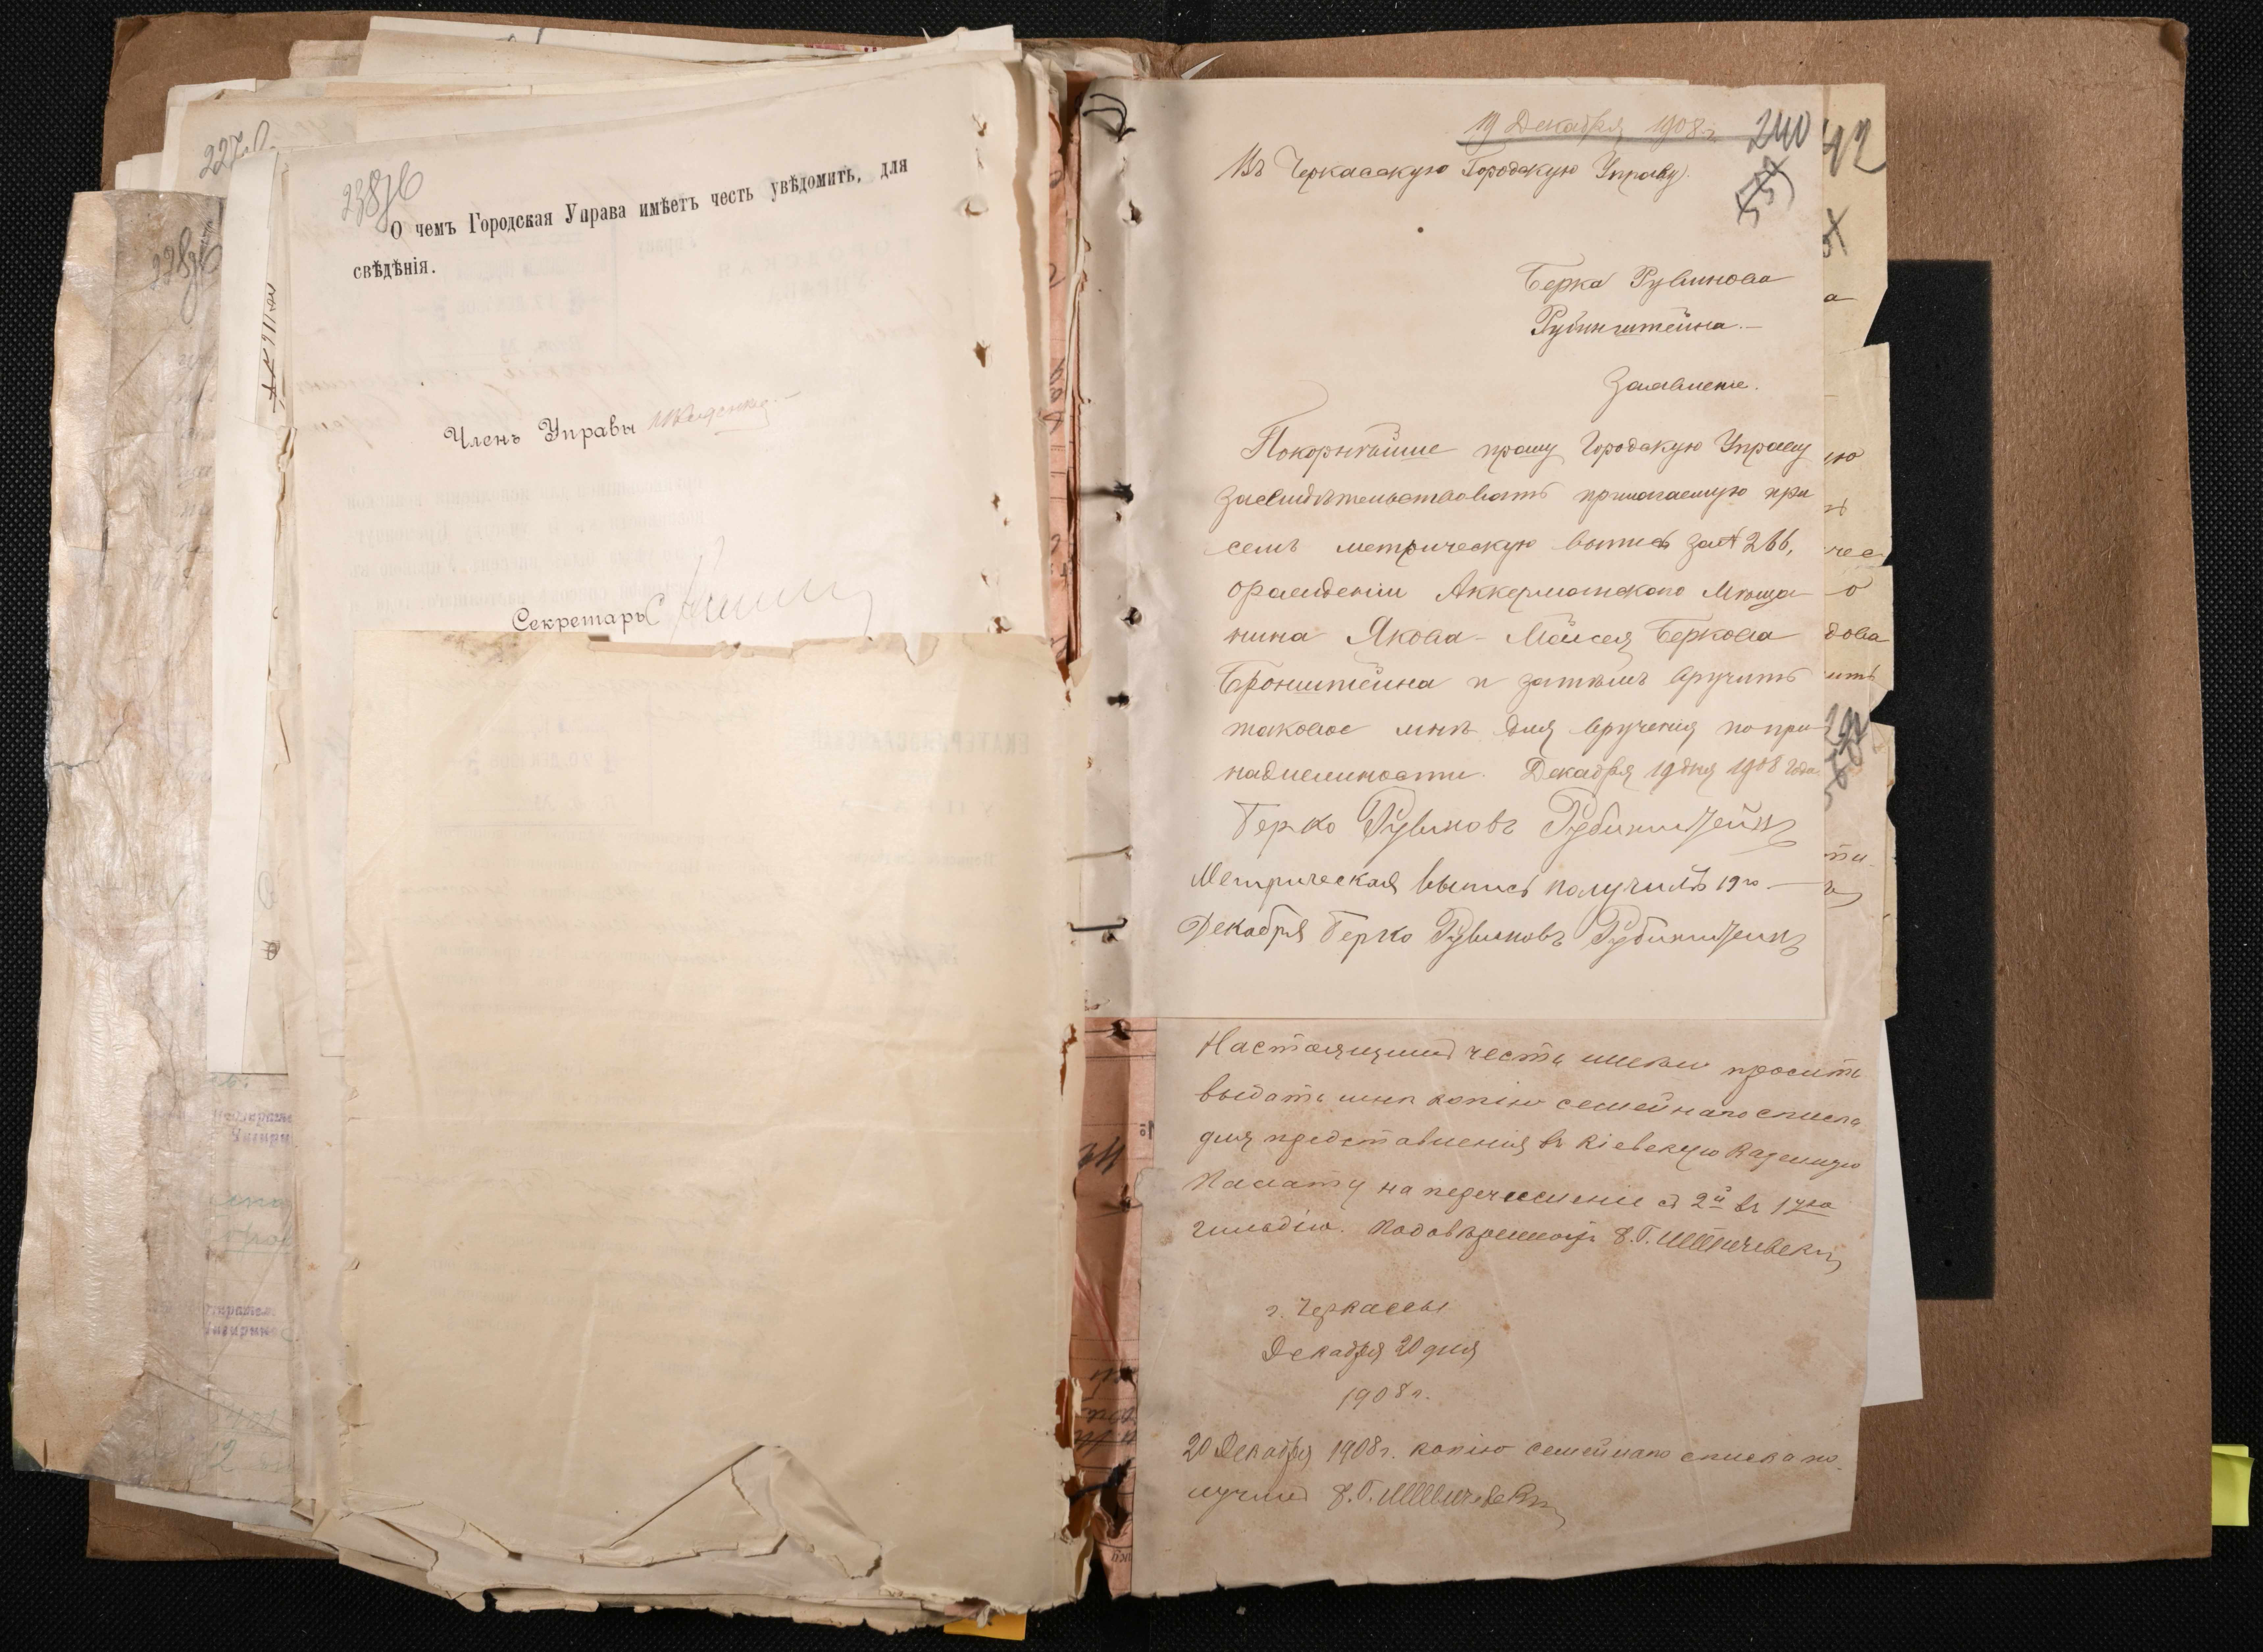 227об.
238об
О чемъ Городская Управа имѣетъ честь увѣдомить, для
свѣдѣнія.
Членъ Управы
Секретарь
228об
19 Декабря 1908 г.
240
42
Въ Черкасскую Городскую Управу.
Берка Рувинова
Рубинштейна.—
Заявленіе.
Покорнѣйше прошу Городскую Управу
засвидѣтельствовать прилагаемую при
семъ метрическую выпись за № 266,
о рожденіи Аккерманскаго мѣща-
нина Якова-Мойсея Беркова
Бронштейна и затѣмъ вручить
таковое мнѣ для врученія по при-
надлежности. Декабря 19 дня 1908 года.
Берко Рувиновъ Рубинштейнъ
Метрическая выпись получилъ 19го—
Декабря Берко Рувиновъ Рубинштейнъ
Настоящимъ честь имѣю просить
выдать мнѣ копію семейнаго списка
для представленія въ Кіевскую Казенную
Палату на перечисленіе съ 2й въ 1ую
гильдію.
г. Черкассы
Декабря 20 дня
1908 г.
20 Декабря 1908 г. копію семейнаго списка по-
лучилъ